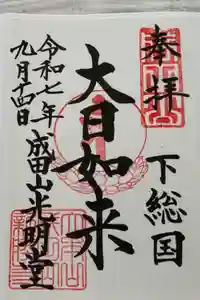 奉拝
下総国
大日如来
令和七年
九月十四日
成田山光明堂